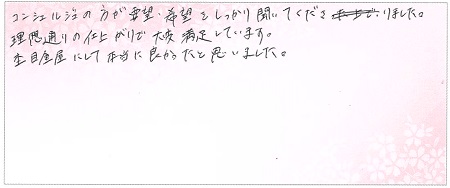 コンシェルジュの方が要望・希望をしっかり聞いてくださりました。
理想通りの仕上がりで大変満足しています。
杢目金屋にして本当に良かったと思いました。